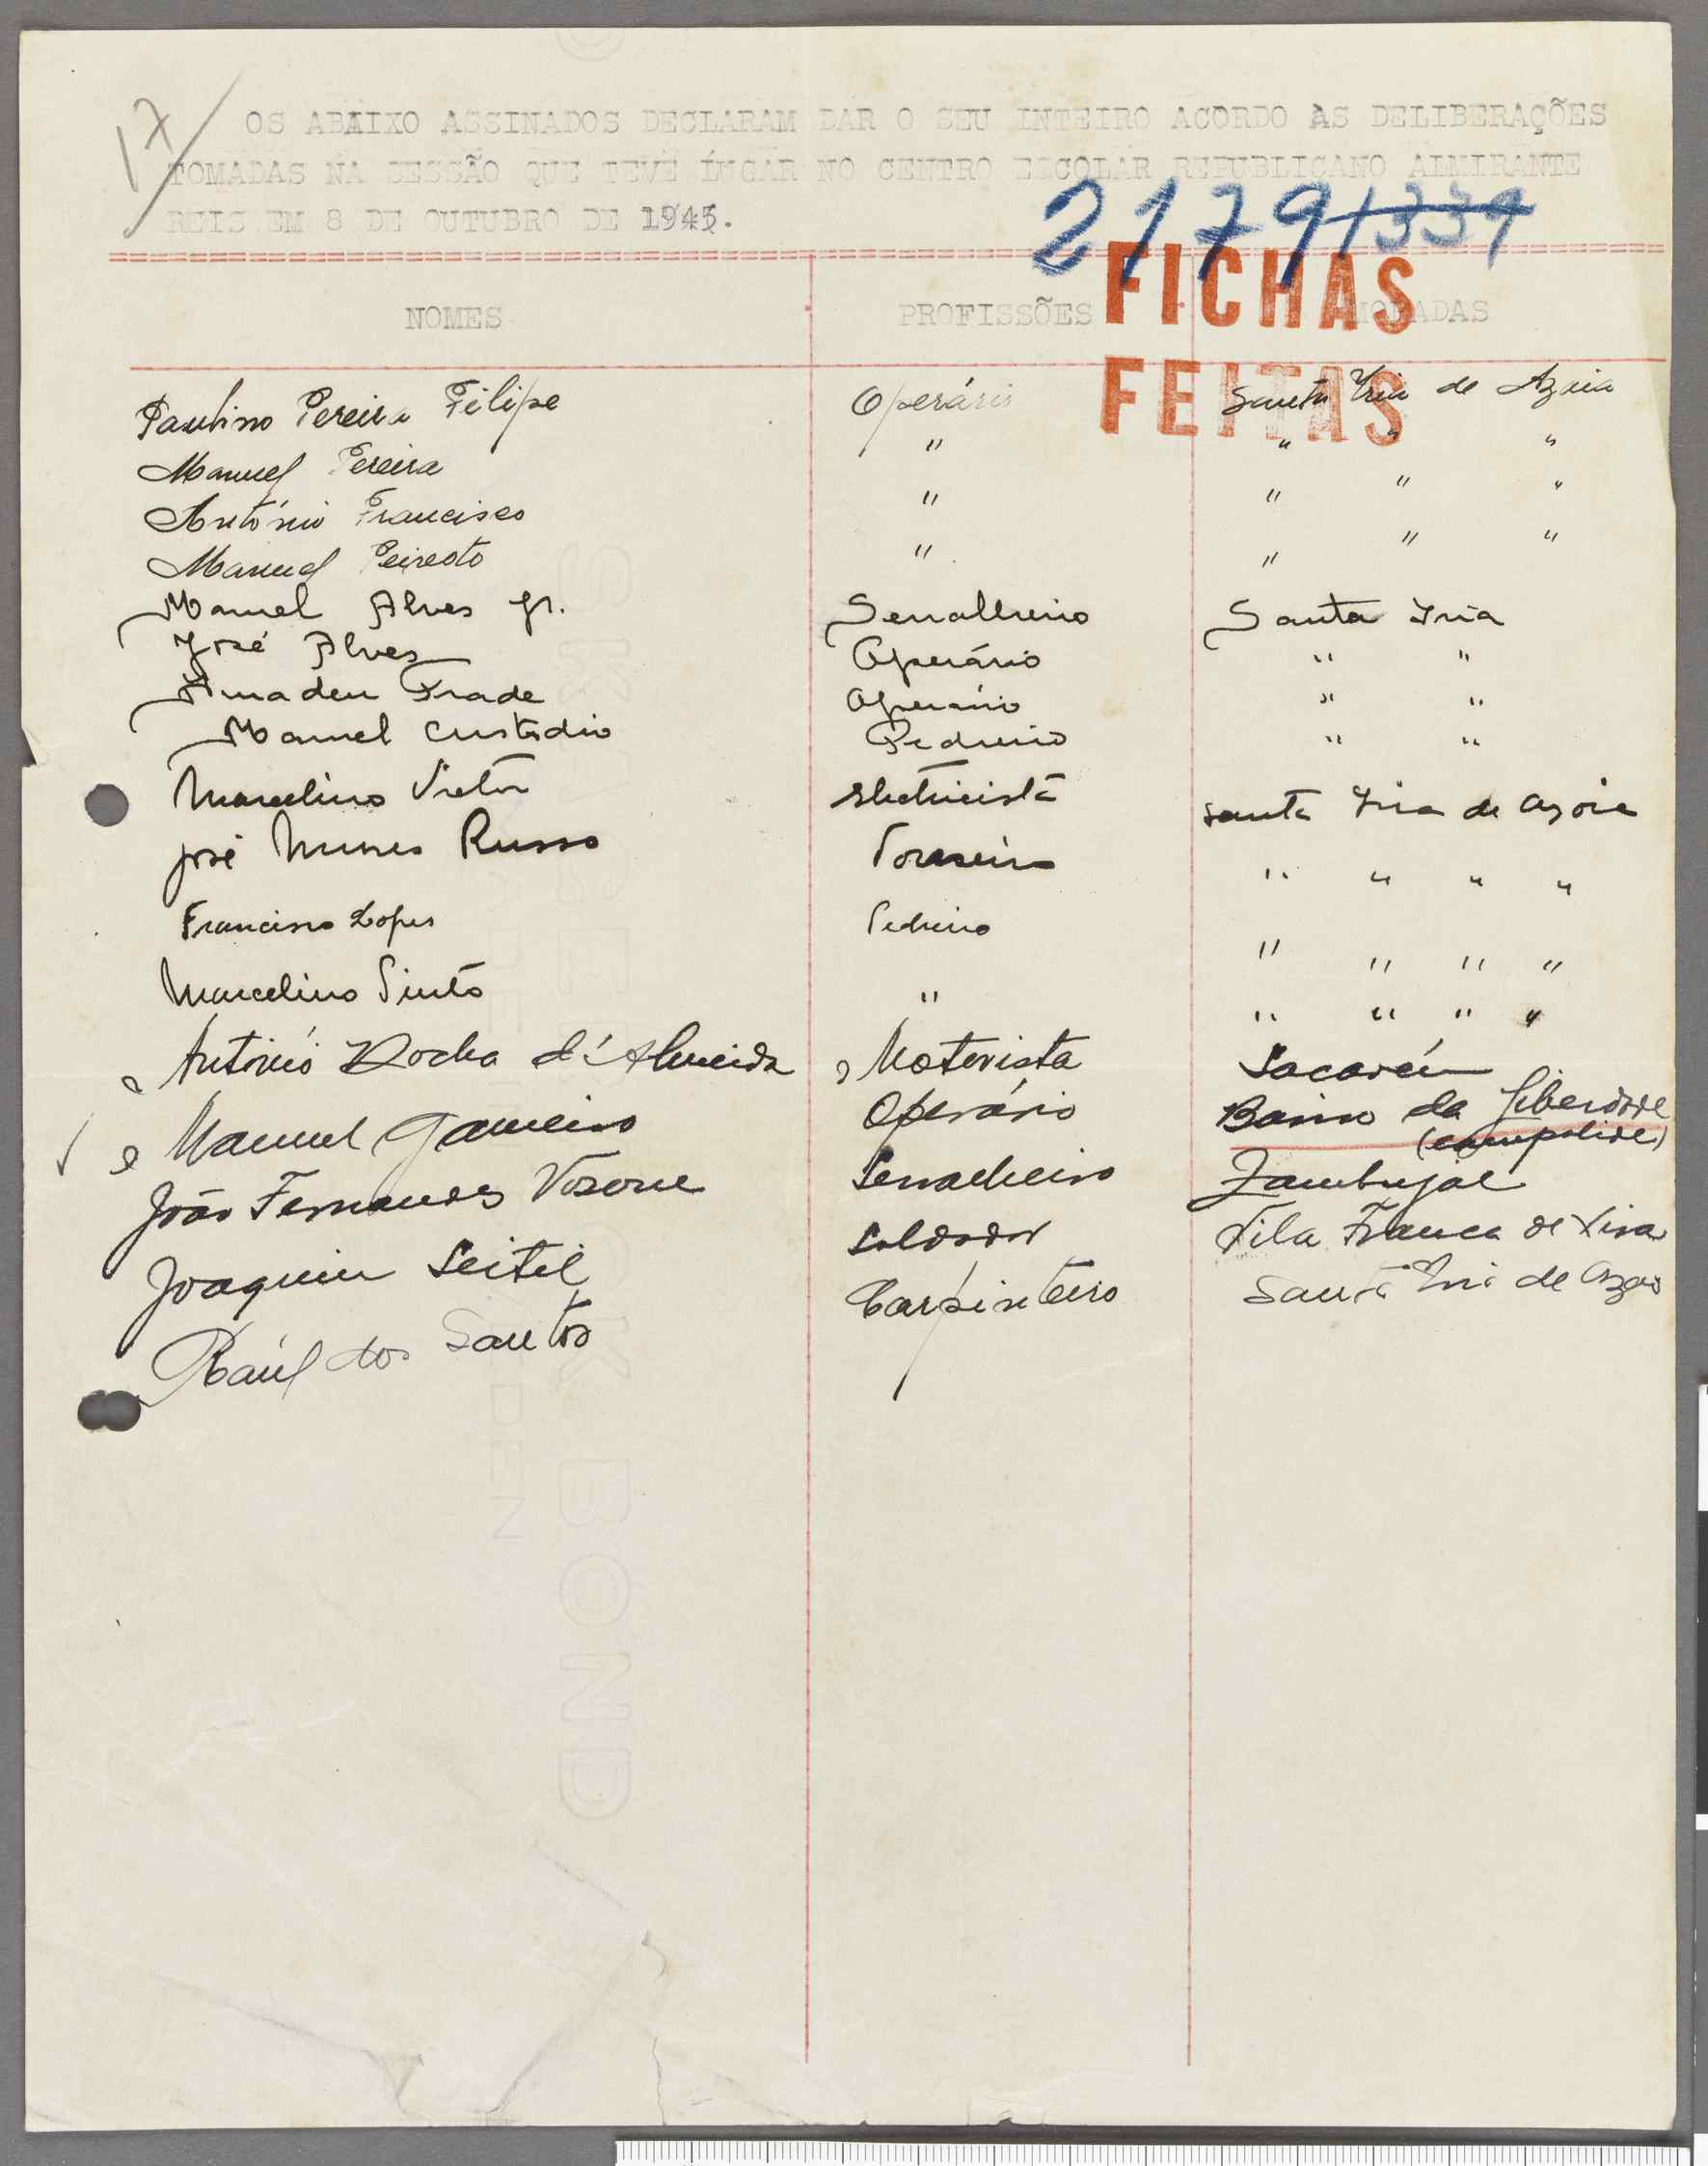 17
OS ABAIXO ASSINADOS DECLARAM DAR O SEU INTEIRO ACORDO ÀS DELIBERAÇÕES
TOMADAS NA SESSÃO QUE TEVE LUGAR NO CENTRO ESCOLAR REPUBLICANO ALMIRANTE
REIS EM 8 DE OUTUBRO DE 1945.
2179 1339
FICHAS
FEITAS
NOMES PROFISSÕES MORADAS
Paulino Pereira Filipe Operário Santa Iria de Azoia
Manuel Pereira " " " "
António Francisco " " " "
Manuel Peixoto " " " "
Manuel Alves Jr. Serralheiro Santa Iria
José Alves Operário " "
Amadeu Frade Operário " "
Manuel Custódio Pedreiro " "
Marcelino Victor Electricista Santa Iria de Azoia
José Nunes Russo Torneiro " " " "
Francisco Lopes Pedreiro " " " "
Marcelino Pinto " " " " "
António Rocha d'Almeida Motorista Sacavém
Manuel Gameiro Operário Bairro da Liberdade
(Campolide)
João Fernandes Serralheiro Zambujal
Joaquim Leitel Soldador Vila Franca de Xira
Raúl dos Santos Carpinteiro Santa Iria de Azoia
BOND